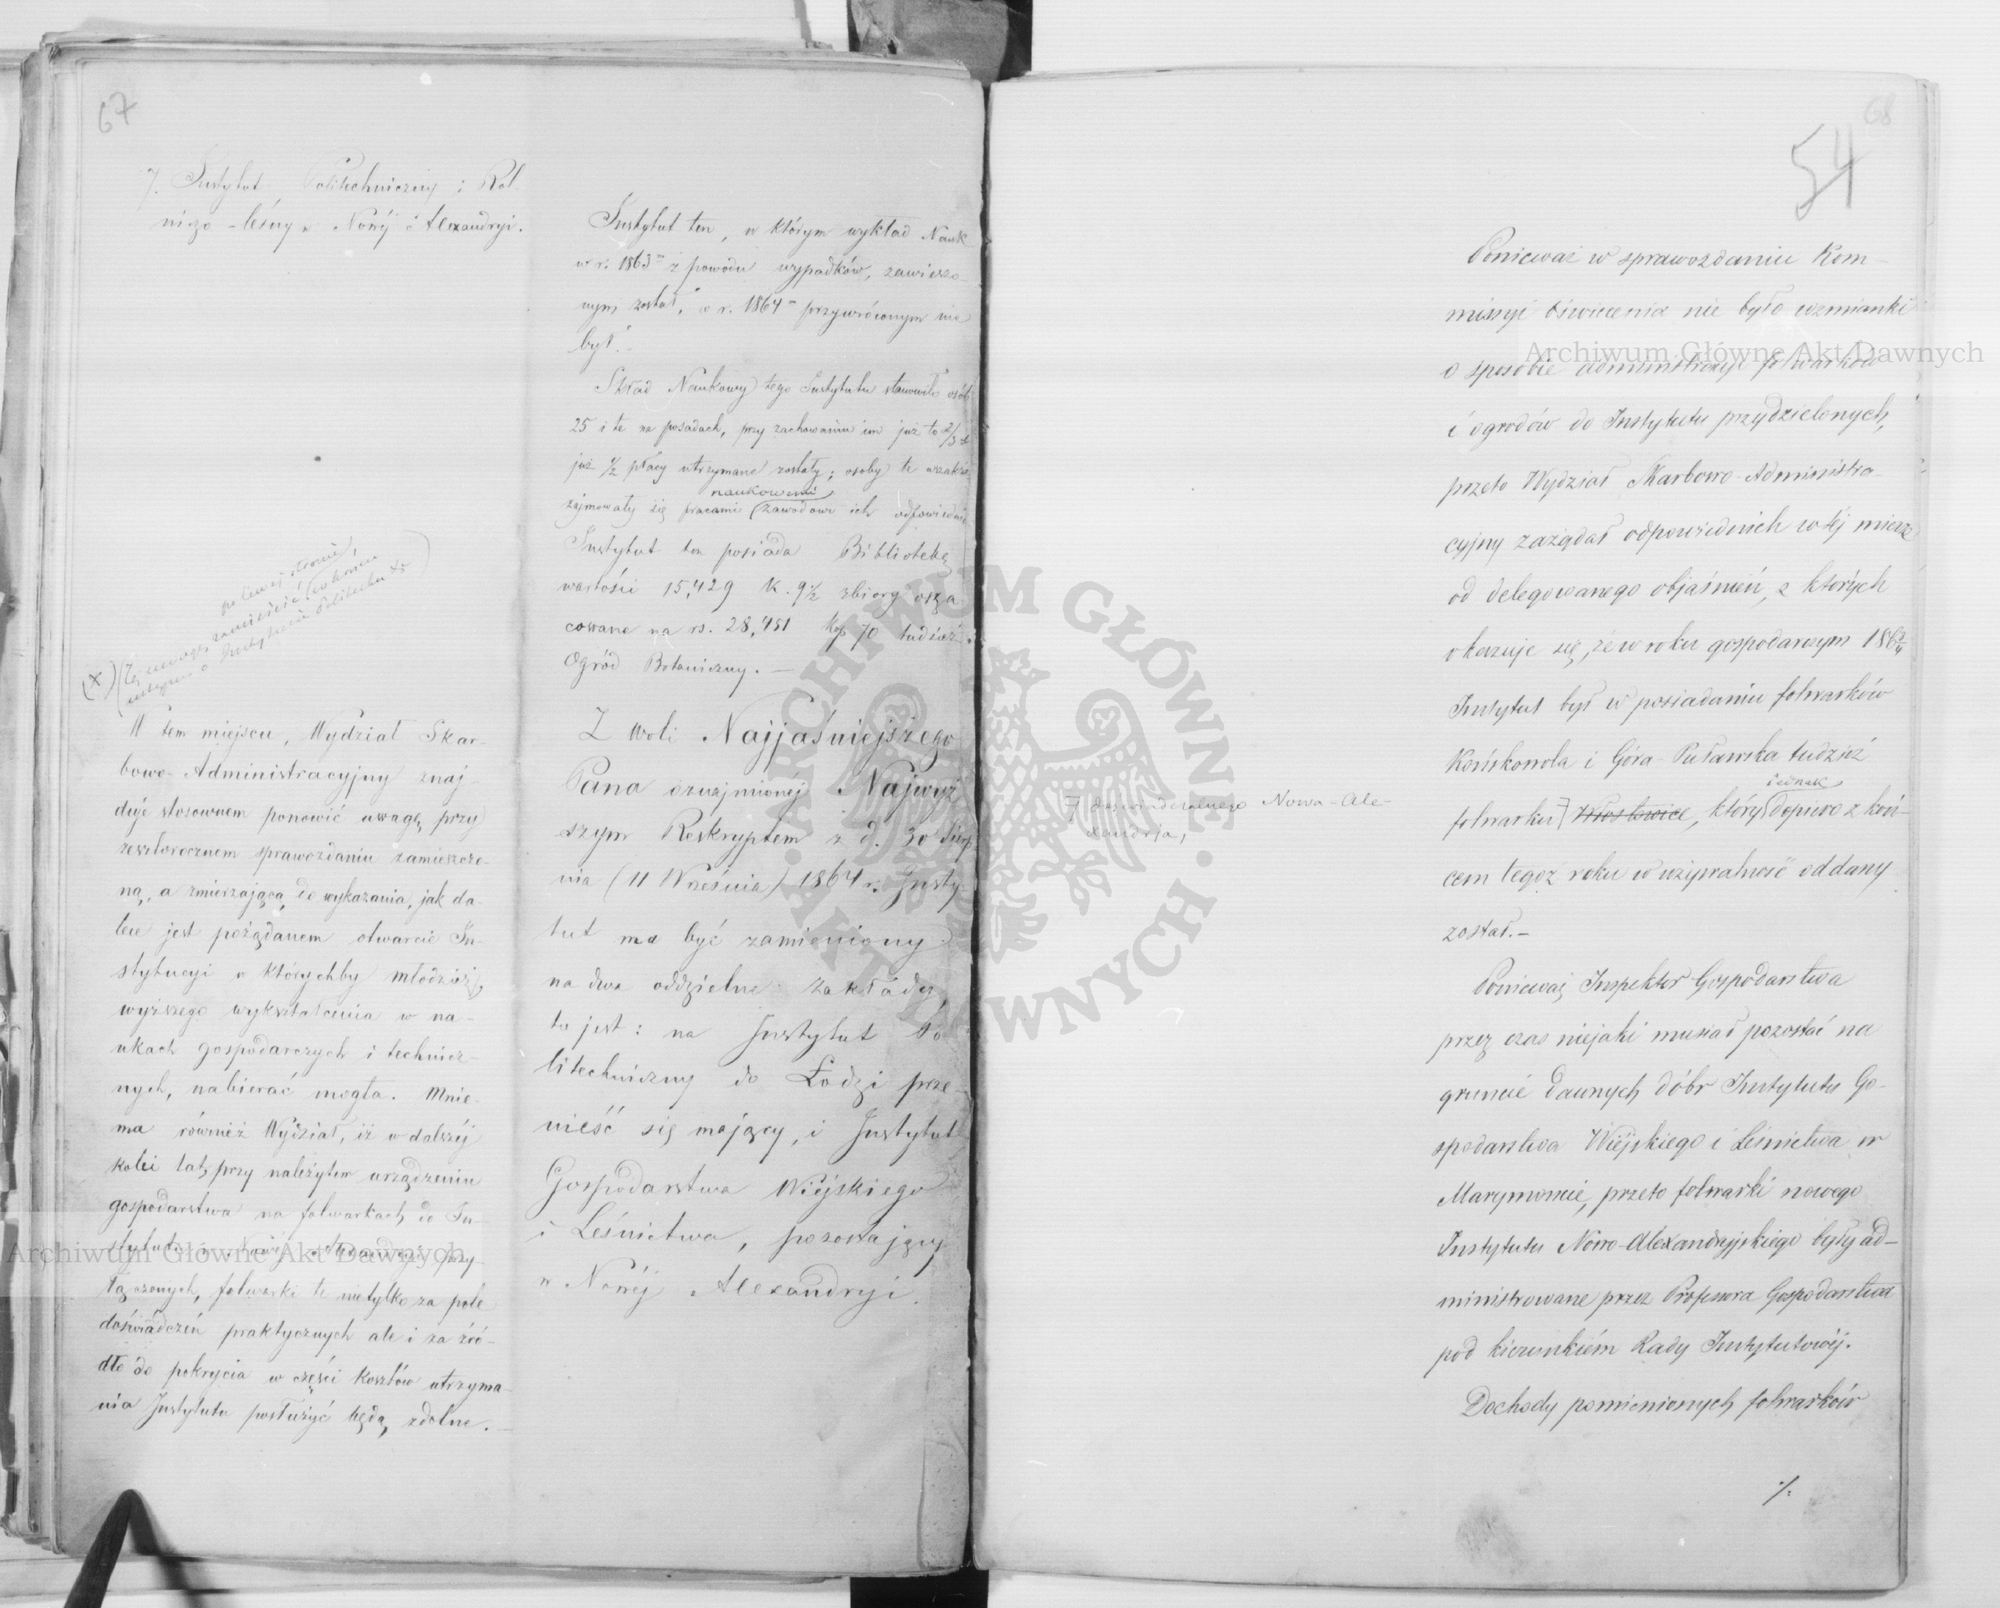 67
7. Instytut Politechniczny i Rol-
niczo-leśny w Nowéj Alexandryi.
(X) (Tę uwagę zamieścić
po lewej stronie,
w końcu
ustępu o Instytucie Politechn.
W tem miejscu, Wydział Skar-
bowo-Administracyjny znaj-
duje stosownem ponowić uwagę, przy
zeszłorocznem sprawozdaniu zamieszczo-
ną, a zmierzającą do wykazania, jak da-
lece jest pożądanem otwarcie In-
stytucyi w którychby młodzież,
wyższego wykształcenia w na-
ukach gospodarczych i technicz-
nych, nabierać mogła. Mnie-
ma również Wydział, iż w dalszéj
kolei lat, przy należytem urządzeniu
gospodarstwa na folwarkach do In-
stytutu w Nowéj Alexandryi przy-
łączonych, folwarki te nietylko za pole
doświadczeń praktycznych ale i za źró-
dło do pokrycia w części kosztów utrzyma-
nia Instytutu posłużyć będą zdolne.
Instytut ten, w którym wykład Nauk
w r. 1863m z powodu wypadków, zawieszo-
nym został, w r. 1864m przywróconym nie
był.
Skład Naukowy tego Instytutu stanowiło osób
25 i te na posadach, przy zachowaniu im już to 2/3
już 1/2 płacy utrzymane zostały; osoby te wszakże
naukowemi
zajmowały się pracami zawodowi ich odpowiedniemi
Instytut ten posiada Bibliotekę
wartości 15,429 k. 9½ zbiory osza-
cowane na rs. 28,451 kop 70 tudzież
Ogród Botaniczny. —
Z Woli Najjaśniejszego
Pana oznajmionéj Najwyż-
szym Reskryptem z d. 30 Sierp-
nia (11 Września) 1864 r. Insty-
tut ma być zamieniony
na dwa oddzielne zakłady,
to jest: na Instytut Po-
litechniczny do Łodzi prze-
nieść się mający, i Instytut
Gospodarstwa Wiejskiego
i Leśnictwa, pozostający
w Nowéj Alexandryi.
68
54
Ponieważ w sprawozdaniu Kom-
missyi Oświecenia nie było wzmianki
o sposobie administracyi folwarków
i ogrodów do Instytutu przydzielonych,
przeto Wydział Skarbowo-Administra-
cyjny zażądał odpowiednich w téj mierze
od delegowanego objaśnień, z których
okazuje się, że w roku gospodarczym 186¾
Instytut był w posiadaniu folwarków
Końskowola i Góra-Puławska tudzież
jednak
folwarku Włostowice, który dopiero z koń-
cem tegoż roku w używalność oddany
został.—
doświadczalnego Nowa-Ale-
xandrja,
Ponieważ Inspektor Gospodarstwa
przez czas niejaki musiał pozostać na
gruncie dawnych dóbr Instytutu Go-
spodarstwa Wiejskiego i Leśnictwa w
Marymoncie, przeto folwarki nowego
Instytutu Nowo-Alexandryjskiego były ad-
ministrowane przez Profesora Gospodarstwa
pod kierunkiém Rady Instytutowéj.
Dochody pomienionych folwarków
./.
Archiwum Główne Akt Dawnych
Archiwum Główne Akt Dawnych
ARCHIWUM GŁÓWNE
AKT DAWNYCH